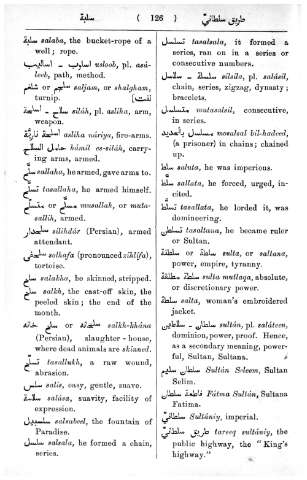 سلبة ( 126 ) طريق سلطاني
سلبة salaba, the bucket-rope of a
well; rope.
اسلوب - اساليب usloob, pl. asá-
leeb, path, method.
سلجم or شلغم saljam, or shalgham,
turnip. (لفت)
سلاح - اسلحة siláh, pl. asliha, arm,
weapon.
اسلحة نارية asliha náriya, fire-arms.
حامل السلاح hámil es-siláh, carry-
ing arms, armed.
سلّح sallaha, he armed, gave arms to.
تسلّح tasallaha, he armed himself.
مسلّح or متسلّح musallah, or muta-
sallih, armed.
سلحدار silihdár (Persian), armed
attendant.
سلحفى salhafa (pronounced zihlifa),
tortoise.
سلخ salakha, he skinned, stripped.
سلخ salkh, the cast-off skin, the
peeled skin; the end of the
month.
سلخ خانه or سلخانه salkh-khána
(Persian), slaughter-house,
where dead animals are skinned.
تسلّخ tasallukh, a raw wound,
abrasion.
سلس salis, easy, gentle, suave.
سلاسة salása, suavity, facility of
expression.
سلسبيل salsabeel, the fountain of
Paradise.
سلسل salsala, he formed a chain,
series.
تسلسل tasalsala, it formed a
series, ran on in a series or
consecutive numbers.
سلسلة - سلاسل silsila, pl. salásil,
chain, series, zigzag, dynasty;
bracelets.
متسلسل mutasalsil, consecutive,
in series.
مسلسل بالحديد mosalsal bil-hadeed,
(a prisoner) in chains; chained
up.
سلط saluta, he was imperious.
سلّط sallata, he forced, urged, in-
cited.
تسلّط tasallata, he lorded it, was
domineering.
تسلطن tasaltana, he became ruler
or Sultan.
سلطة or سلطنة sulta, or saltana,
power, empire, tyranny.
سلطة مطلقة sulta mutlaqa, absolute,
or discretionary power.
سلطة salta, woman's embroidered
jacket.
سلطان - سلاطين sultán, pl. saláteen,
dominion, power, proof. Hence,
as a secondary meaning, power-
ful, Sultan, Sultana.
سلطان سليم Sultán Seleem, Sultan
Selim.
فاطمة سلطان Fátma Sultán, Sultana
Fatima.
سلطاني Sultániy, imperial.
طريق سلطاني tareeq sultániy, the
public highway, the "King's
highway."